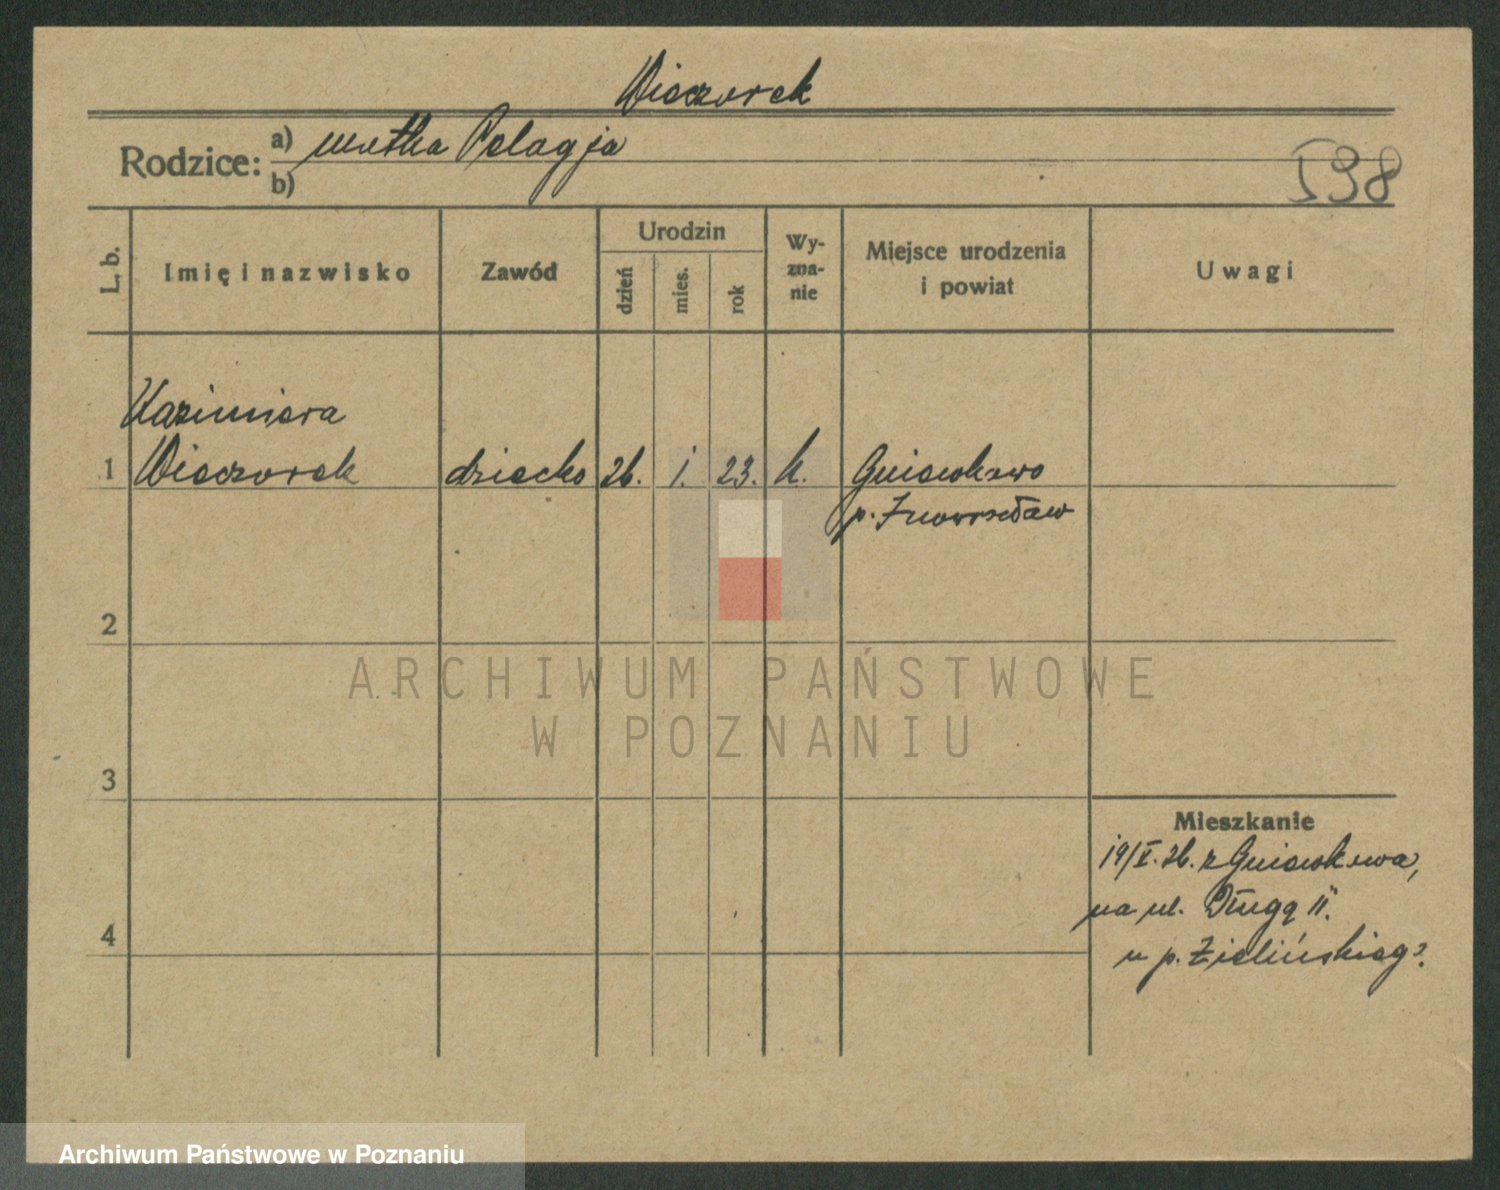 Wieczorek
Rodzice: a) matka Pelagja
b)
L. b.
Imię i nazwisko
Zawód
Urodzin
dzień
mies.
rok
Wy-
zna-
nie
Miejsce urodzenia
i powiat
Uwagi
Kazimiera
1 Wieczorek dziecko 26. 1. 23. k. Gniewkowo
p. Inowrocław
2
ARCHIWUM PAŃSTWOWE
W POZNANIU
3
Mieszkanie
19/X.26. z Gniewkowa,
na ul. Długą 11.
4
u p. Zielińskieg?.
Archiwum Państwowe w Poznaniu